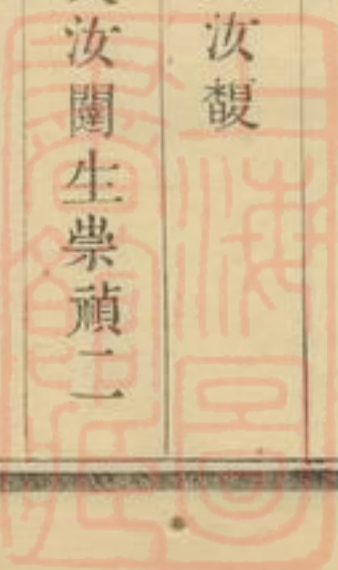 汝馥
汝闓生崇禎二